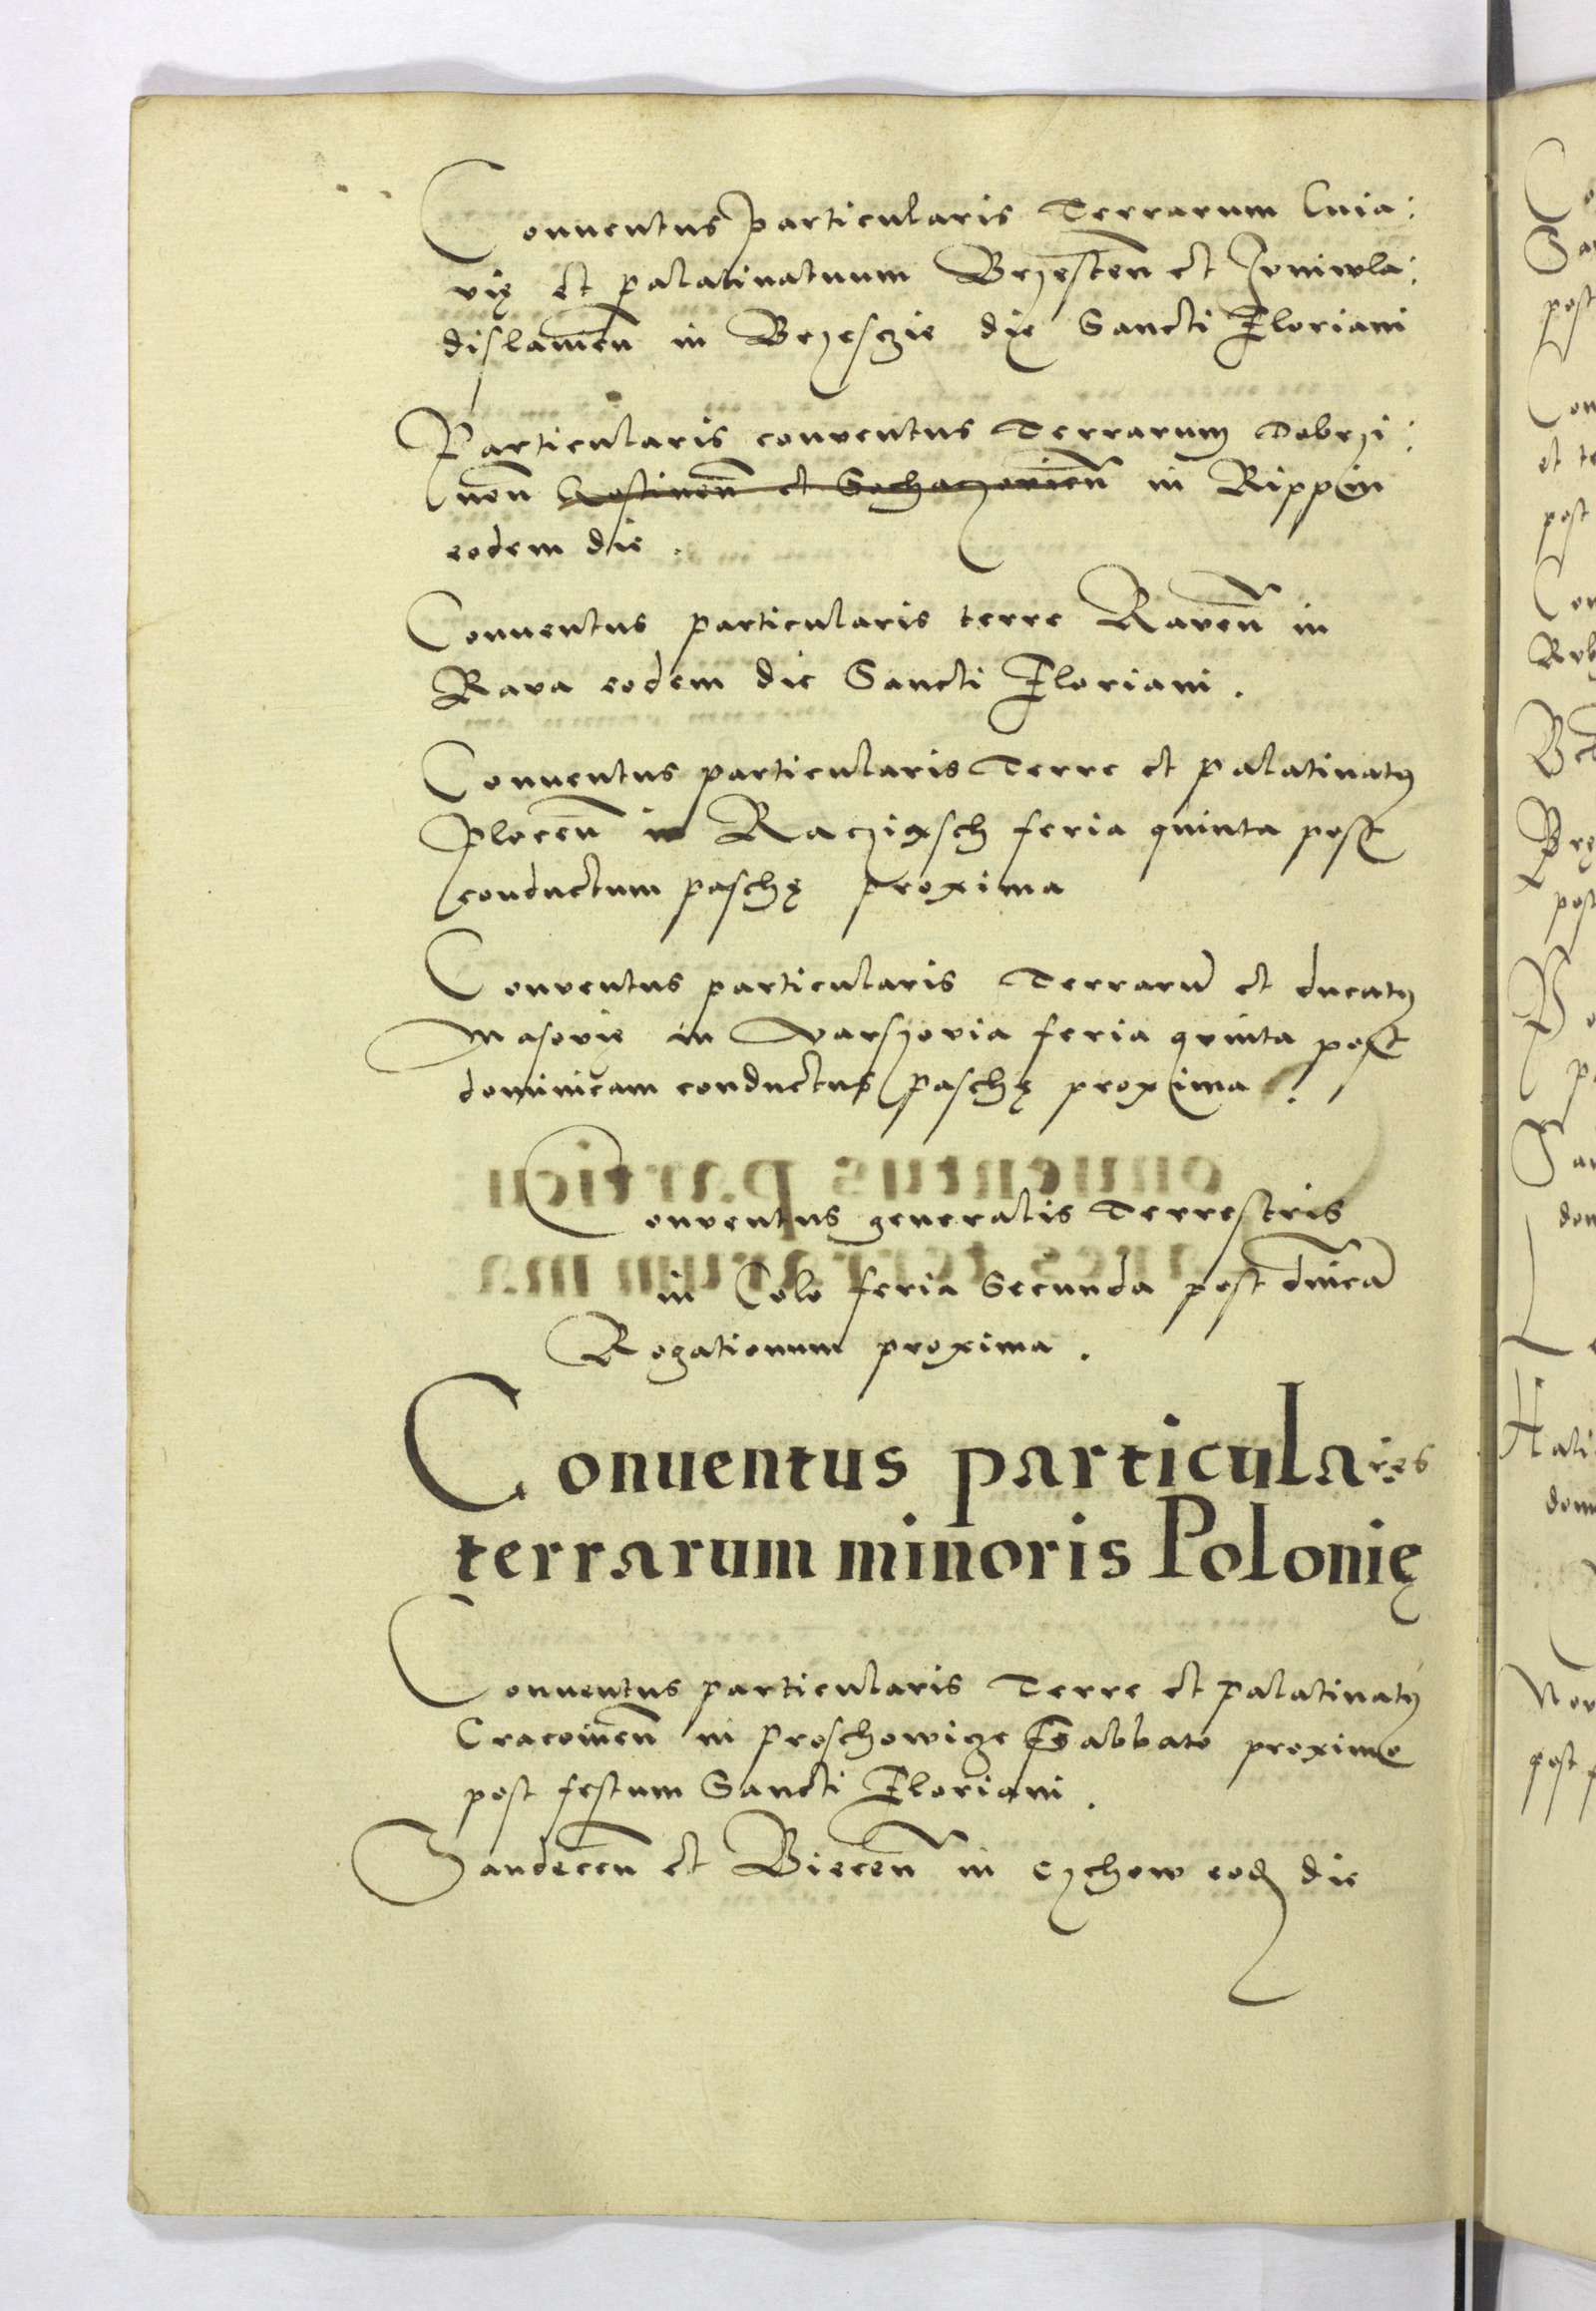 Conuentus particularis Terrarum Cuia:
vię et palatinatuum Brzesten̄ et Iuniwla:
dislauien̄ in Brzesczie die Sancti Floriani
Particularis conventus Terrarum Dobrzi:
nen̄ Gostinen̄ et Sochaczovien̄ in Rippin
eodem die.
Conuentus particularis terre Raven̄ in
Rava eodem die Sancti Floriani.
Conuentus particularis Terre et palatinatꝰ
plocen̄ in Racziąsch feria quinta post
conductum paschę proxima
Conventus particularis Terrarū et ducatꝰ
Masovię in Varszovia feria quinta post
dominicam conductus paschę proxima.
Conventus generalis Terrestris
in Colo feria Secunda post dn̄icā
Rogationum proxima.
Conuentus particulares
terrarum minoris Polonię
Conuentus particularis Terre et palatinatꝰ
Cracovien̄ in Proschowicze Sabbato proximo
post festum Sancti Floriani.
Sandecen̄ et Biecen̄ in Czchow eod die